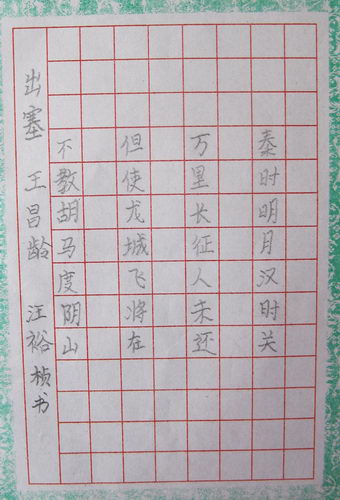 秦时明月汉时关
万里长征人未还
但使龙城飞将在
不教胡马度阴山
出塞 王昌龄 汪裕桢书